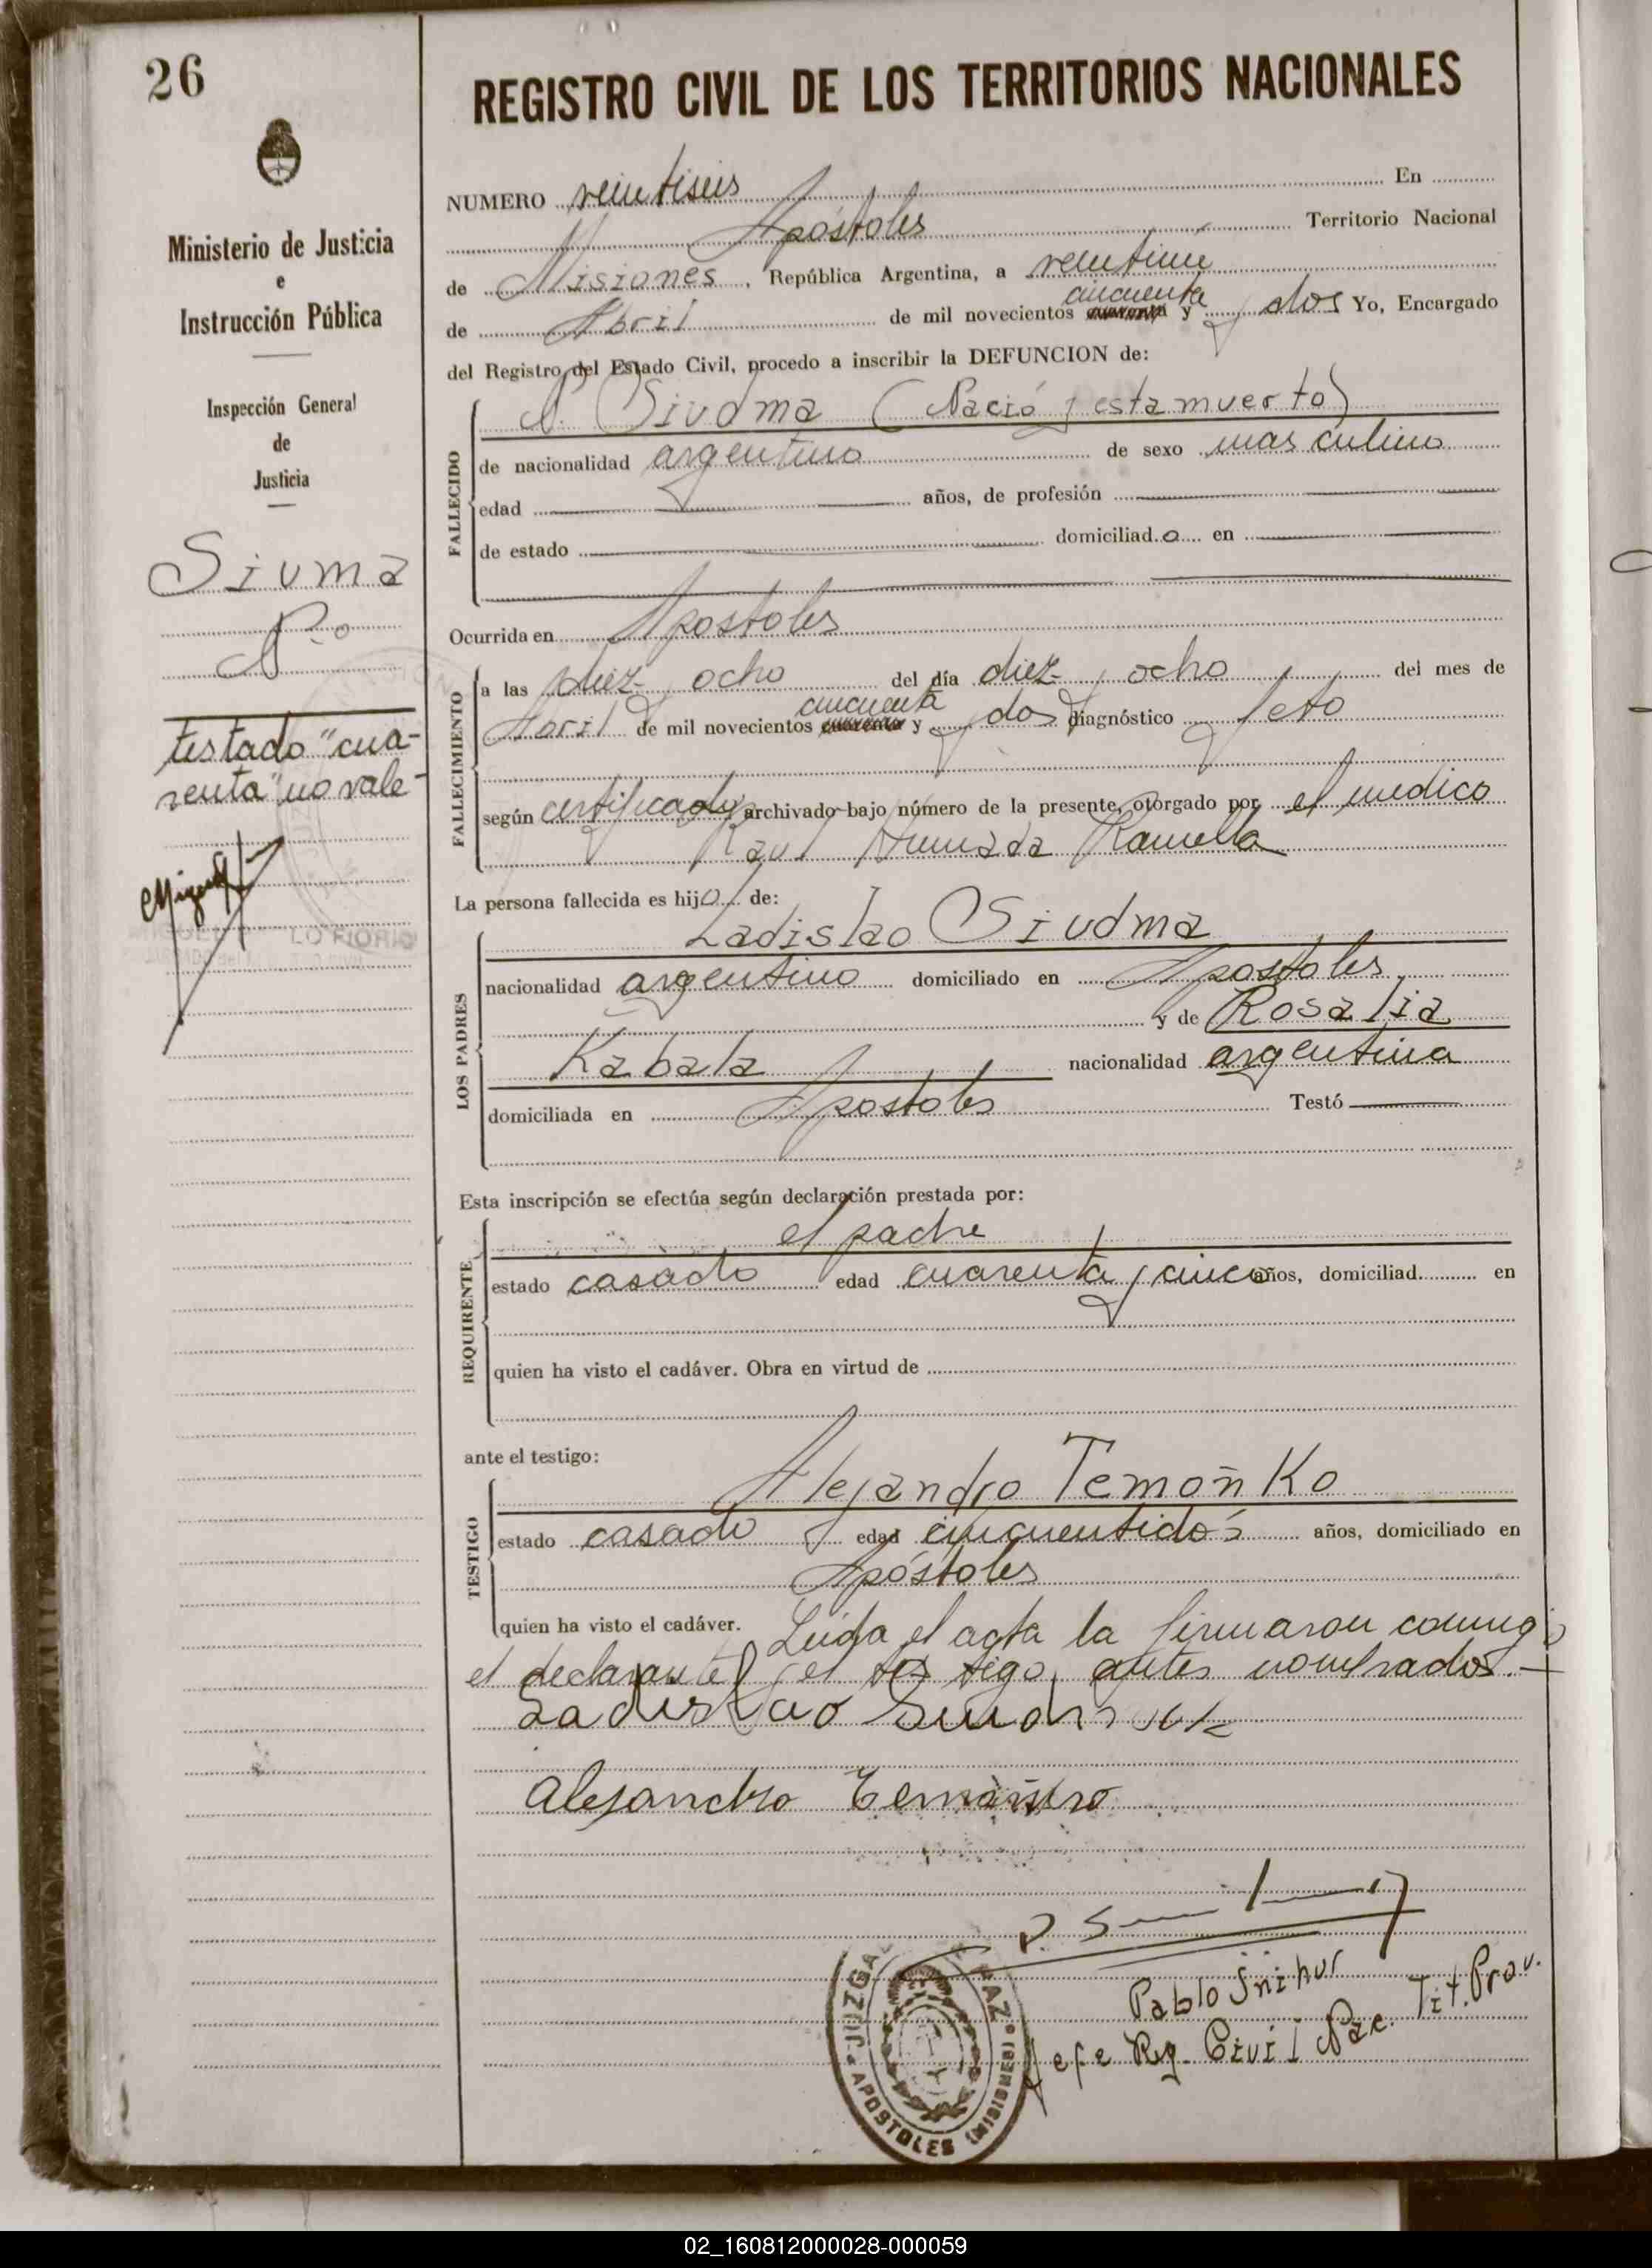 26
Ministerio de Justicia
e
Instrucción Pública
Inspección General
de
Justicia
Siuma
N.o
testado "cua-
renta" no vale-
LO FIORIO
REGISTRO CIVIL DE LOS TERRITORIOS NACIONALES
NUMERO veintiseis En
Apóstoles Territorio Nacional
de Misiones, República Argentina, a veintiuno
cincuenta
de Abril de mil novecientos cuarenta y y dos Yo, Encargado
del Registro del Estado Civil, procedo a inscribir la DEFUNCION de:
FALLECIDO
N. Siudma (Nació y esta muerto)
de nacionalidad argentino de sexo masculino
edad años, de profesión
de estado domiciliado en
Ocurrida en Apostoles
FALLECIMIENTO
a las diez y ocho del día diez y ocho del mes de
cincuenta
Abril de mil novecientos cuarenta y y dos diagnóstico feto
según certificado archivado bajo número de la presente, otorgado por el medico
Raul Ahumada Ramella
La persona fallecida es hijo de:
LOS PADRES
Ladislao Siudma
nacionalidad argentino domiciliado en Apostoles
y de Rosalia
Kabala nacionalidad argentina
domiciliada en Apostoles Testó
Esta inscripción se efectúa según declaración prestada por:
REQUIRENTE
el padre
estado casado edad cuarenta y cinco años, domiciliad en
quien ha visto el cadáver. Obra en virtud de
ante el testigo:
TESTIGO
Alejandro Temoñko
estado casado edad cincuentidós años, domiciliado en
Apóstoles
quien ha visto el cadáver. Leida el acta la firmaron conmigo
el declarante y el testigo antes nombrados.-
Ladislao
Alejandro
Pablo Snihur
Jefe Reg. Civil Nac. Tit. Prov.
JUZGA PAZ
APOSTOLES (MISIONES)
02_160812000028-000059